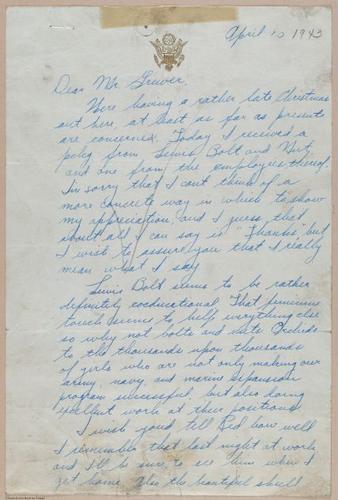 April 10 1943
Dear Mr. Gruver,
Were having a rather late Christmas
out here, at least as far as presents
are concerned. Today I received a
pckg from Lewis Bolt and Nut,
and one from the employees thereof.
Im sorry that I cant think of a
more concrete way in which to show
my appreciation, and I guess that
about all I can say is "Thanks", but
I wish to assure you that I really
mean what I say.
Lewis Bolt seems to be rather
definitely coeducational. That feminine
touch seems to help everything else
so why not bolts and nuts. Orchids
to the thousands upon thousands
of girls who are not only making our
army, navy, and marine expansion
program successful, but also doing
excellent work at their positions.
I wish you'd tell how well
I remember that last night at work
and I'll be sure to see him when I
get home. Also the beautiful skull